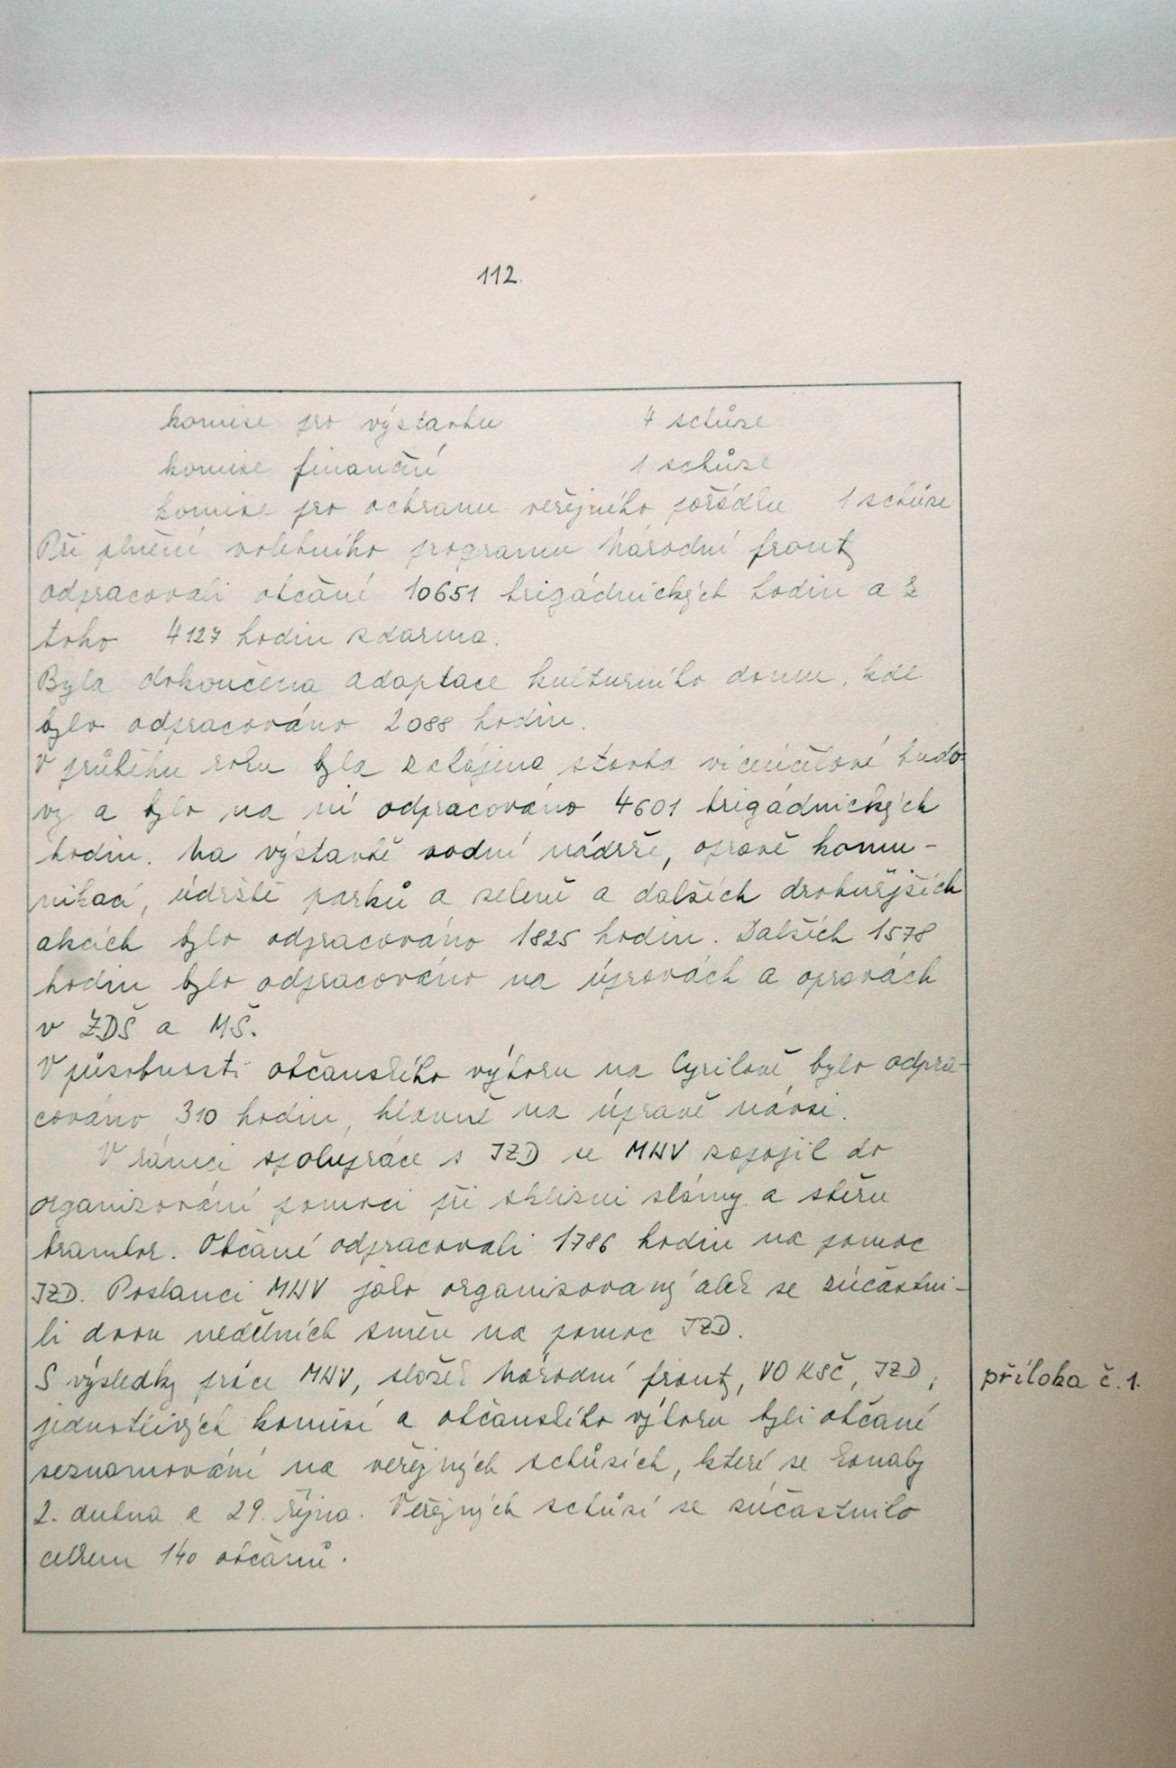 112.
komise pro výstavbu 4 schůze
komise finanční 1 schůze
komise pro ochranu veřejného pořádku 1 schůze
Při plnění volebního programu Národní fronty
odpracovali občané 10651 brigádnických hodin a z
toho 4127 hodin zdarma.
Byla dokončena adaptace kulturního domu, kde
bylo odpracováno 2088 hodin.
V průběhu roku byla zahájena stavba víceúčelové budo-
vy a bylo na ní odpracováno 4601 brigádnických
hodin. Na výstavbě vodní nádrže, opravě komu-
nikací, údržbě parků a zeleně a dalších drobnějších
akcích bylo odpracováno 1825 hodin. Dalších 1578
hodin bylo odpracováno na úpravách a opravách
v ZDŠ a MŠ.
V působnosti občanského výboru na Cyrilově bylo odpra-
cováno 310 hodin, hlavně na úpravě návsi.
V rámci spolupráce s JZD se MNV zapojil do
organizování pomoci při sklizni slámy a sběru
brambor. Občané odpracovali 1786 hodin na pomoc
JZD. Poslanci MNV jako organizovaný celek se zúčastni-
li dvou nedělních směn na pomoc JZD.
S výsledky práce MNV, složek Národní fronty, VO KSČ, JZD,
příloha č. 1.
jednotlivých komisí a občanského výboru byli občané
seznamováni na veřejných schůzích, které se konaly
2. dubna a 29. října. Veřejných schůzí se zúčastnilo
celkem 140 občanů.